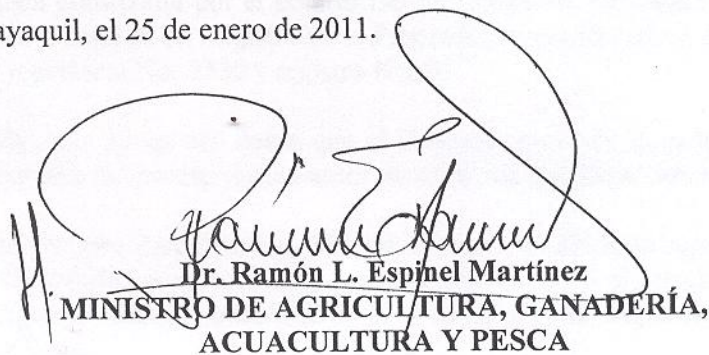 ayaquil, el 25 de enero de 2011.
Dr. Ramón L. Espinel Martínez
MINISTRO DE AGRICULTURA, GANADERÍA,
ACUACULTURA Y PESCA